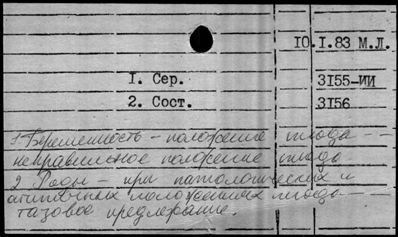 10.I.83 М.Л.
1. Сер. 3155-ИИ
2. Сост. 3156
1. Беременность - положение плода -
неправильное положение плода
2 Роды - при патологических и
атипичных положениях плода -
тазовое предлежание.